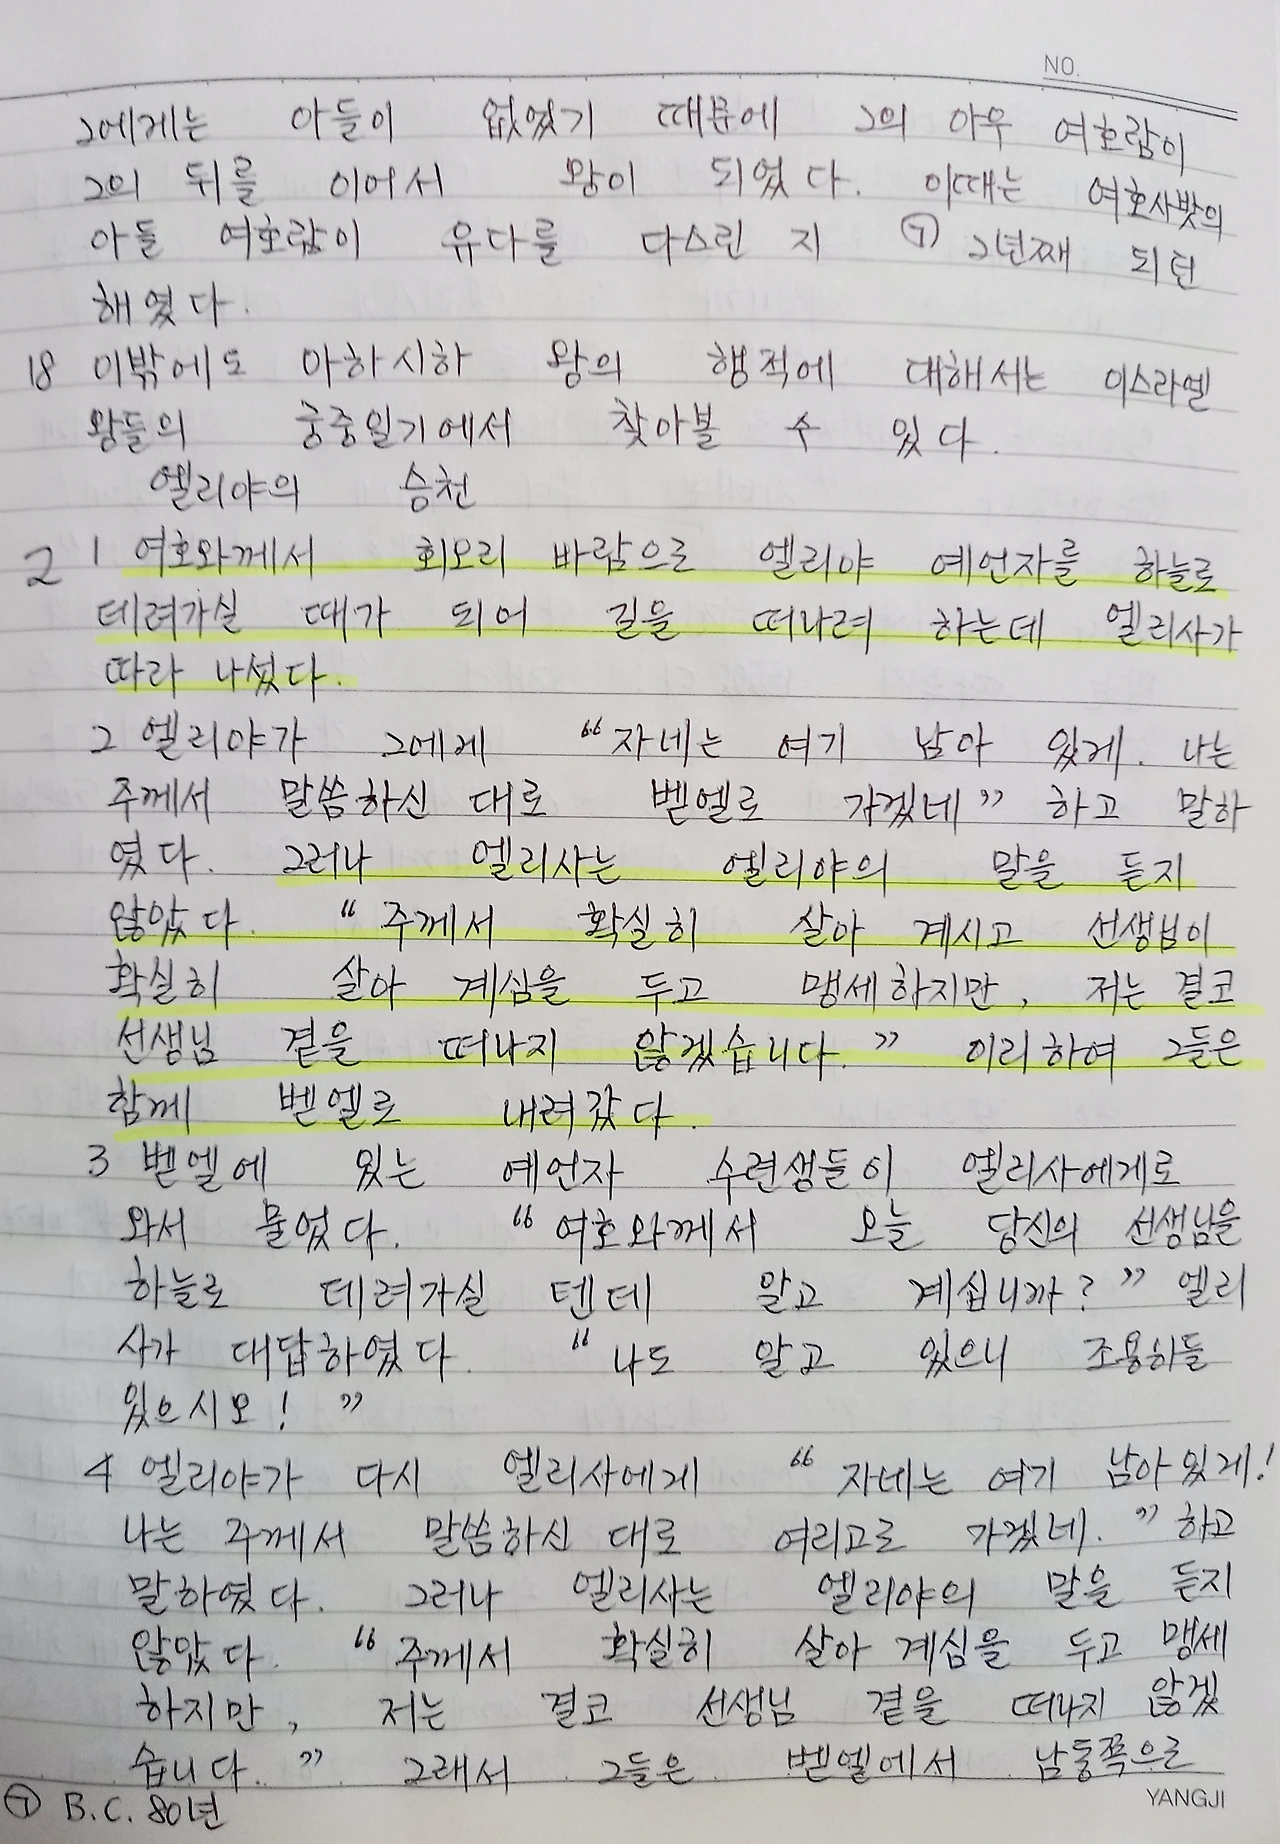 NO.
그에게는 아들이 없었기 때문에 그의 아우 여호람이
그의 뒤를 이어서 왕이 되었다. 이때는 여호사밧의
아들 여호람이 유다를 다스린 지 ㉠ 2년째 되던
해였다.
18 이밖에도 아하시하 왕의 행적에 대해서는 이스라엘
왕들의 궁중일기에서 찾아볼 수 있다.
엘리야의 승천
2 1 여호와께서 회오리 바람으로 엘리야 예언자를 하늘로
데려가실 때가 되어 길을 떠나려 하는데 엘리사가
따라 나섰다.
2 엘리야가 그에게 “자네는 여기 남아 있게. 나는
주께서 말씀하신 대로 벧엘로 가겠네” 하고 말하
였다. 그러나 엘리사는 엘리야의 말을 듣지
않았다. “주께서 확실히 살아 계시고 선생님이
확실히 살아 계심을 두고 맹세하지만, 저는 결코
선생님 곁을 떠나지 않겠습니다.” 이리하여 그들은
함께 벧엘로 내려갔다.
3 벧엘에 있는 예언자 수련생들이 엘리사에게로
와서 물었다. “여호와께서 오늘 당신의 선생님을
하늘로 데려가실 텐데 알고 계십니까?” 엘리
사가 대답하였다. “나도 알고 있으니 조용히들
있으시오!”
4 엘리야가 다시 엘리사에게 “자네는 여기 남아있게!
나는 주께서 말씀하신 대로 여리고로 가겠네.” 하고
말하였다. 그러나 엘리사는 엘리야의 말을 듣지
않았다. “주께서 확실히 살아 계심을 두고 맹세
하지만, 저는 결코 선생님 곁을 떠나지 않겠
습니다.” 그래서 그들은 벧엘에서 남동쪽으로
㉠ B.C. 801년
YANGJI